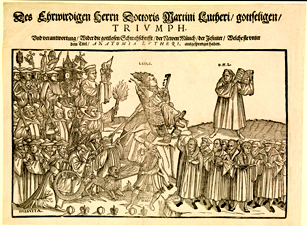 Des Ehrwirdigen Herrn Doctoris Martini Lutheri / gottseligen /
TRIVMPH,
Vnd verantwortung / Wider die gottlosen Schmehschrifft / der Newen Münch / der Jesuiter / Welche sie vnter
dem Titel / ANATOMIA LVTHERI, außgesprenget haben.
LEO X.
D. M. L.